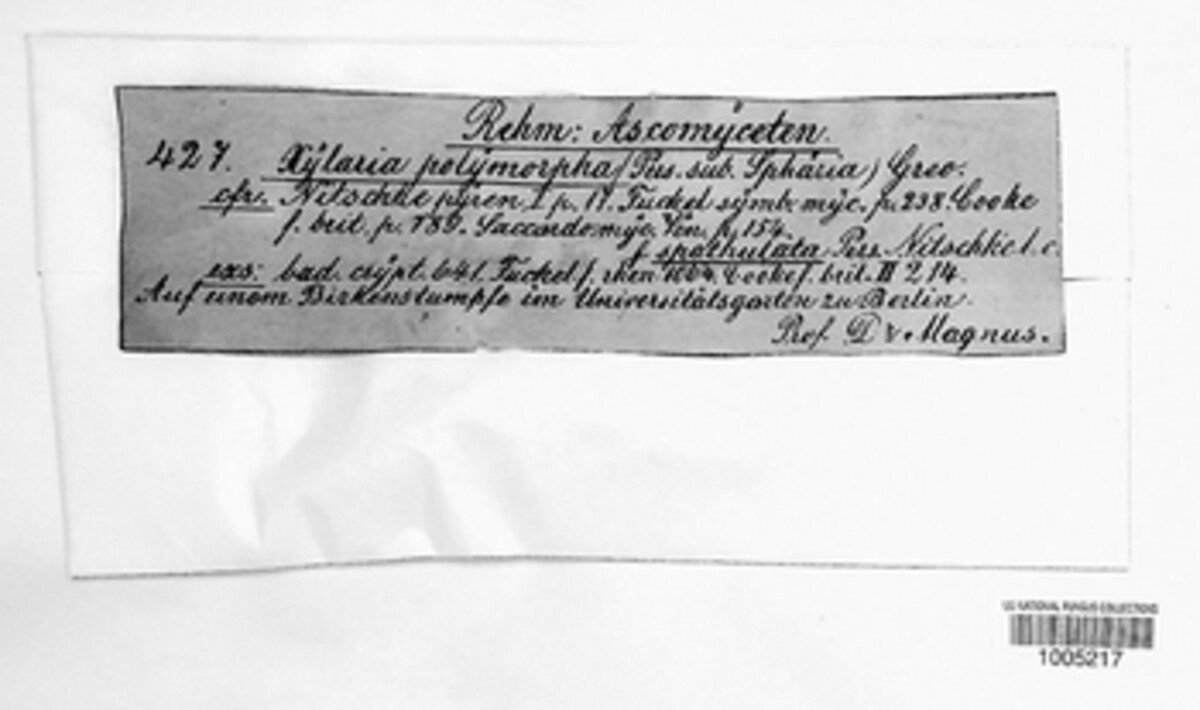 Rehm: Ascomÿceten.
427. Xÿlaria polÿmorpha (Pers. sub. Sphäria) Grev.
cfr. Nitschke pÿren. I p. 17. Fuckel sÿmb. mÿc. p. 238. Cooke
f. brit. p. 789. Saccardo mÿc. Ven. p. 154.
f. spathulata Pers. Nitschke l. c.
exs: bad. crÿpt. 641. Fuckel f. rhen 1064. Cooke f. brit. III 214.
Auf einem Birkenstumpfe im Universitätsgarten zu Berlin.
Prof. Dr. Magnus.
US NATIONAL FUNGUS COLLECTIONS
1005217